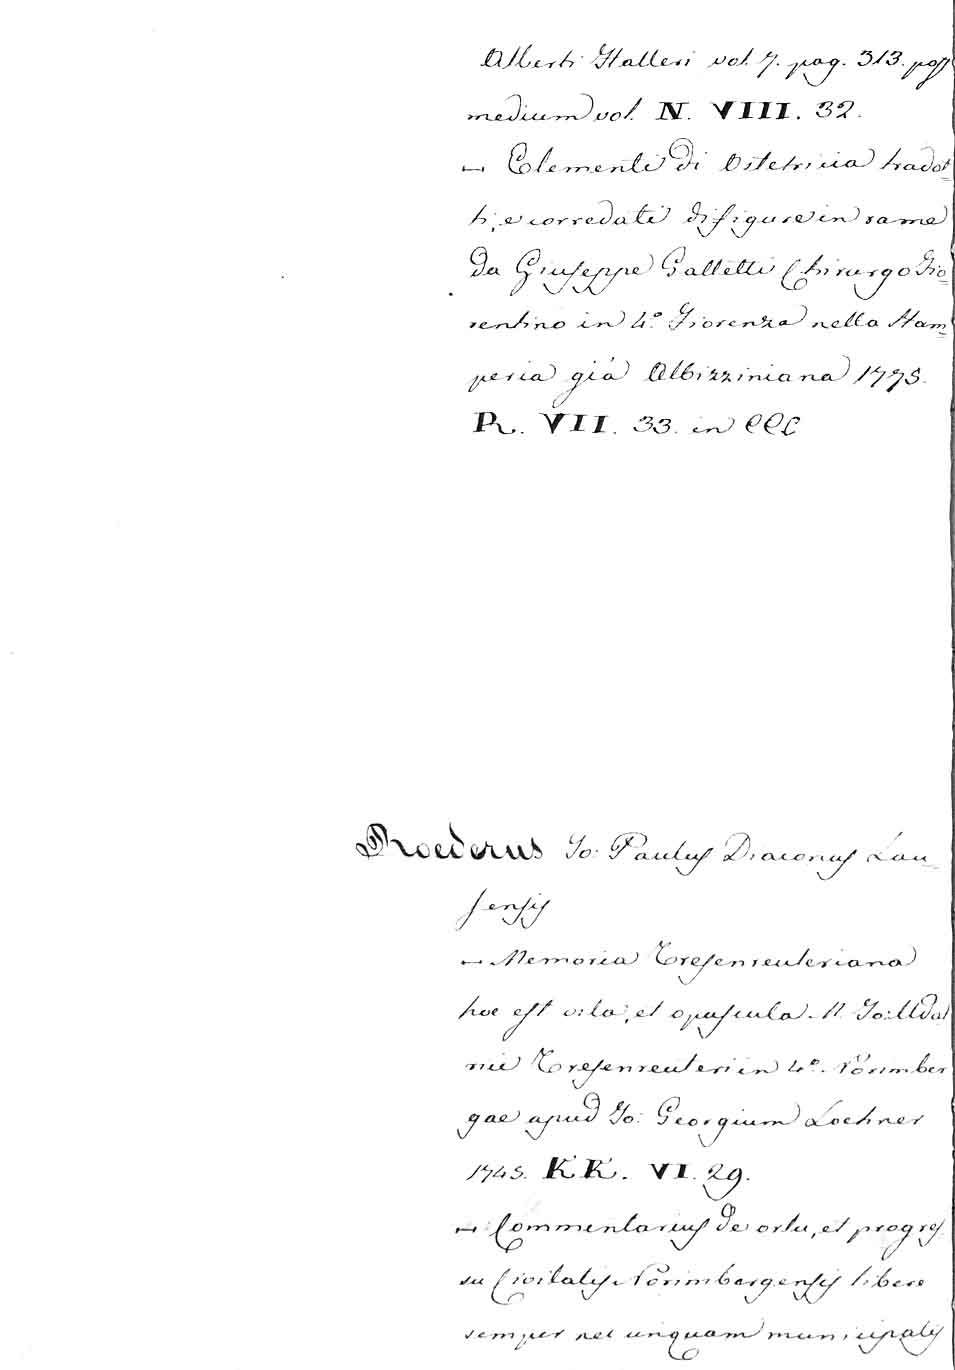 Alberti Halleri vol. 7. pag. 313. post
medium vol. N. VIII. 32.
— Elementi di Ostetricia tradot=
ti, e corredati di figure in rame
da Giuseppe Galletti Chirurgo Fio=
rentino in 4.° Fiorenza nella Stam=
peria già Albizziniana 1775.
R. VII. 33. in
Roederus Jo: Paulus Diaconus Lau=
sensis
— Memoria Tresenreuteriana
hoc est vita, et opuscula M. Jo: Udal
rici Tresenreuteri in 4.° Norimber
gae apud Jo: Georgium Lochner
1745. KK. VI. 29.
— Commentarius de ortu, et progres
su Civitatis Norimbergensis libere
semper nec unquam municipalis